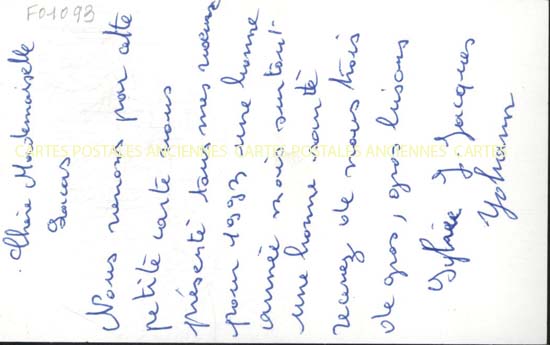 F01093
Chère Mademoiselle
Nous venons par cette
petite carte vous
présenté tous mes voeux
pour 1993 une bonne
année mais surtout
une bonne santé
recevez de nous trois
de gros, gros bisous
Sylvie J Jacques
Yohann
CARTES POSTALES ANCIENNES CARTES POSTALES ANCIENNES CARTES